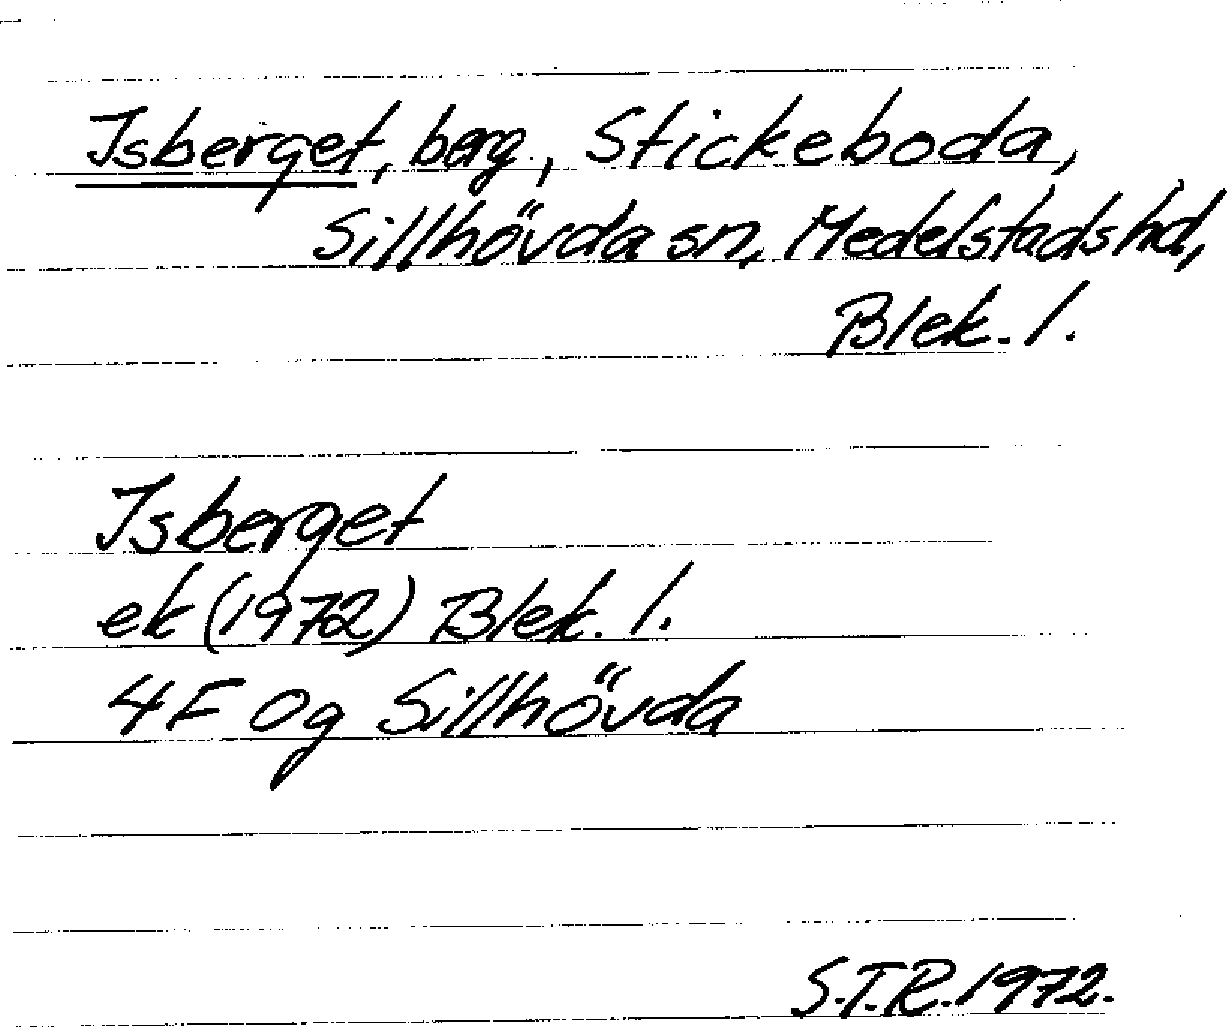 Isberget, berg, Stickeboda,
Sillhövda sn, Medelstads hd,
Blek. l.
Isberget
ek (1972) Blek. l.
4F Og Sillhövda
S.T.R. 1972.